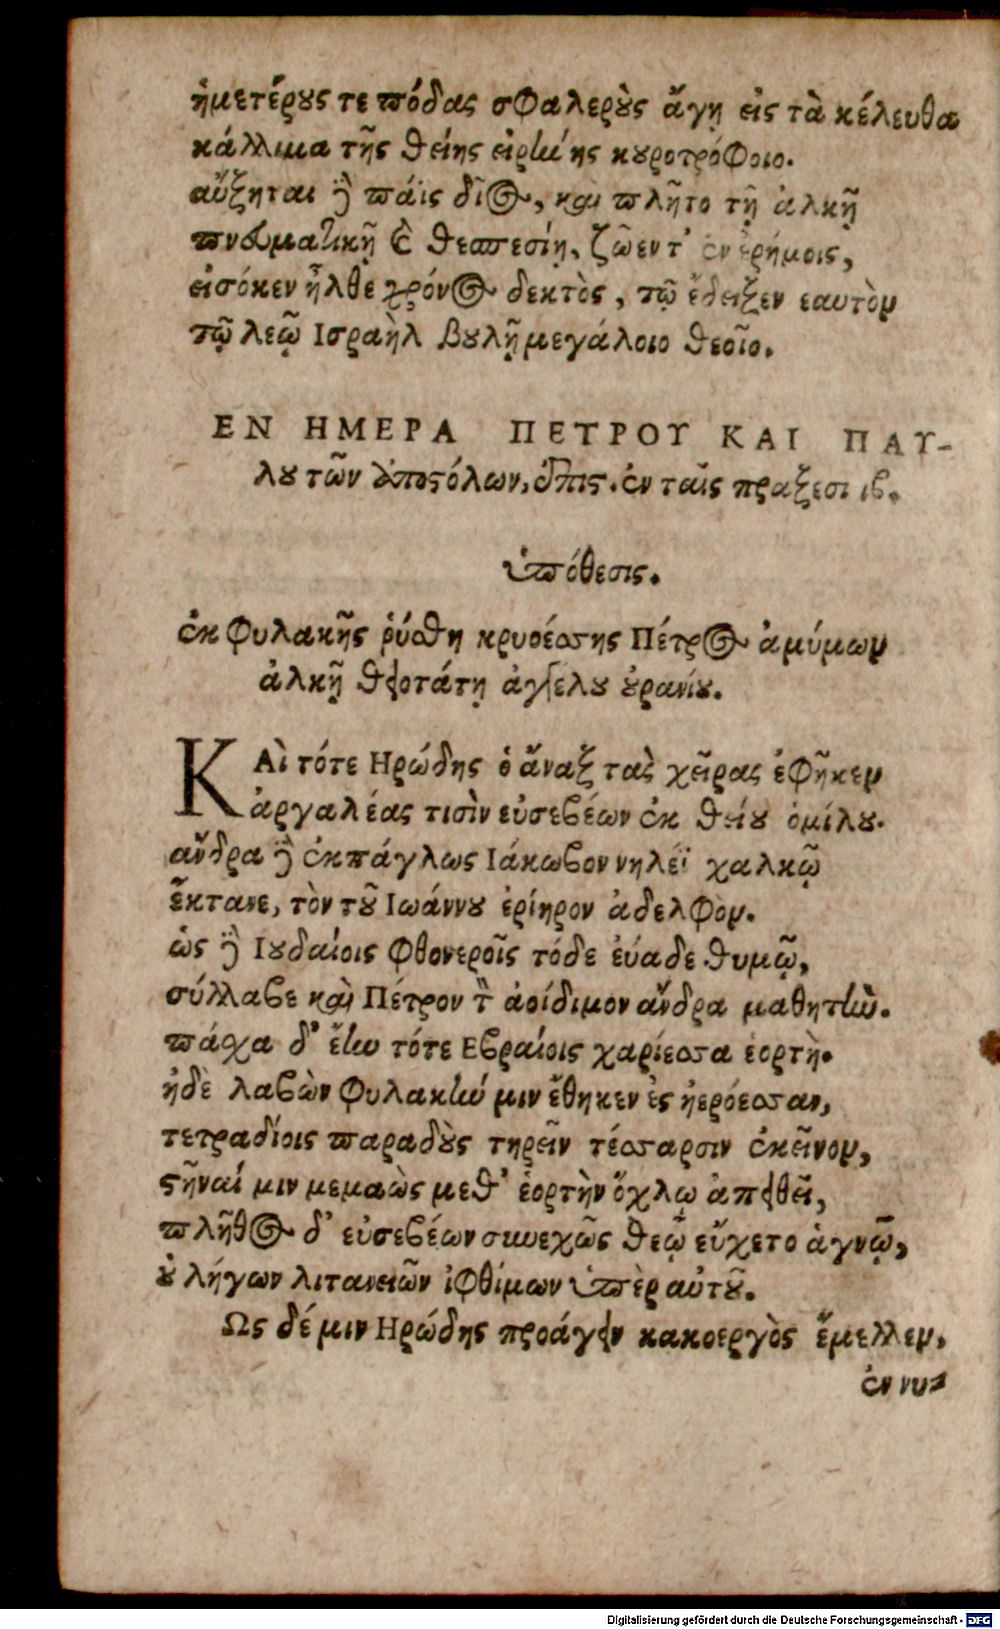 ἡμετέρους τε πόδας σφαλεροὺς ἄγῃ εἰς τὰ κέλευθα
κάλλιμα τῆς θείης εἰρήνης κουροτρόφοιο.
αὔξηται δὲ πάϊς δῖος, καὶ πλῆτο τῇ ἀλκῇ
πνευματικῇ καὶ θεσπεσίῃ, ζῶεν τ' ἐν ἐρήμοις,
εἰσόκεν ἦλθε χρόνος δεκτὸς, τῷ ἔδειξεν εαυτὸν
τῷ λεῷ Ισραὴλ βουλῇ μεγάλοιο θεοῖο.
ΕΝ ΗΜΕΡΑ ΠΕΤΡΟΥ ΚΑΙ ΠΑΥ-
λου τῶν ἀποστόλων, ἐπις. ἐν ταῖς πραξεσι ιβ.
ὑπόθεσις.
ἐκ φυλακῆς ῥύσθη κρυοέσσης Πέτρος ἀμύμων
ἀλκῇ θειοτάτῃ ἀγγέλου οὐρανίου.
ΚΑὶ τότε Ηρώδης ὁ ἄναξ τὰς χεῖρας ἐφῆκεν
ἀργαλέας τισὶν εὐσεβέων ἐκ θείου ὁμίλου.
ἄνδρα δὲ ἐκπάγλως Ιάκωβον νηλέϊ χαλκῷ
ἔκτανε, τὸν τοῦ Ιωάννου ἐρίηρον ἀδελφὸν.
ὡς δὲ Ιουδαίοις φθονεροῖς τόδε εὐαδε θυμῷ,
σύλλαβε καὶ Πέτρον τὸν ἀοίδιμον ἄνδρα μαθητὴν.
πάσχα δ' ἔην τότε Εβραίοις χαρίεσσα ἑορτὴ.
ἠδὲ λαβὼν φυλακήν μιν ἔθηκεν ἐς ἠερόεσσαν,
τετραδίοις παραδοὺς τηρεῖν τέσσαρσιν ἐκεῖνον,
στῆναί μιν μεμαὼς μεθ' ἑορτὴν ὄχλῳ ἀπειθεῖ,
πλῆθος δ' εὐσεβέων συνεχῶς θεῷ εὔχετο ἁγνῷ,
οὐ λήγων λιτανειῶν ἰφθίμων ὑπὲρ αὐτοῦ.
Ως δέ μιν Ηρώδης προάγειν κακοεργὸς ἔμελλεν,
ἐν νυ-
Digitalisierung gefördert durch die Deutsche Forschungsgemeinschaft - DFG